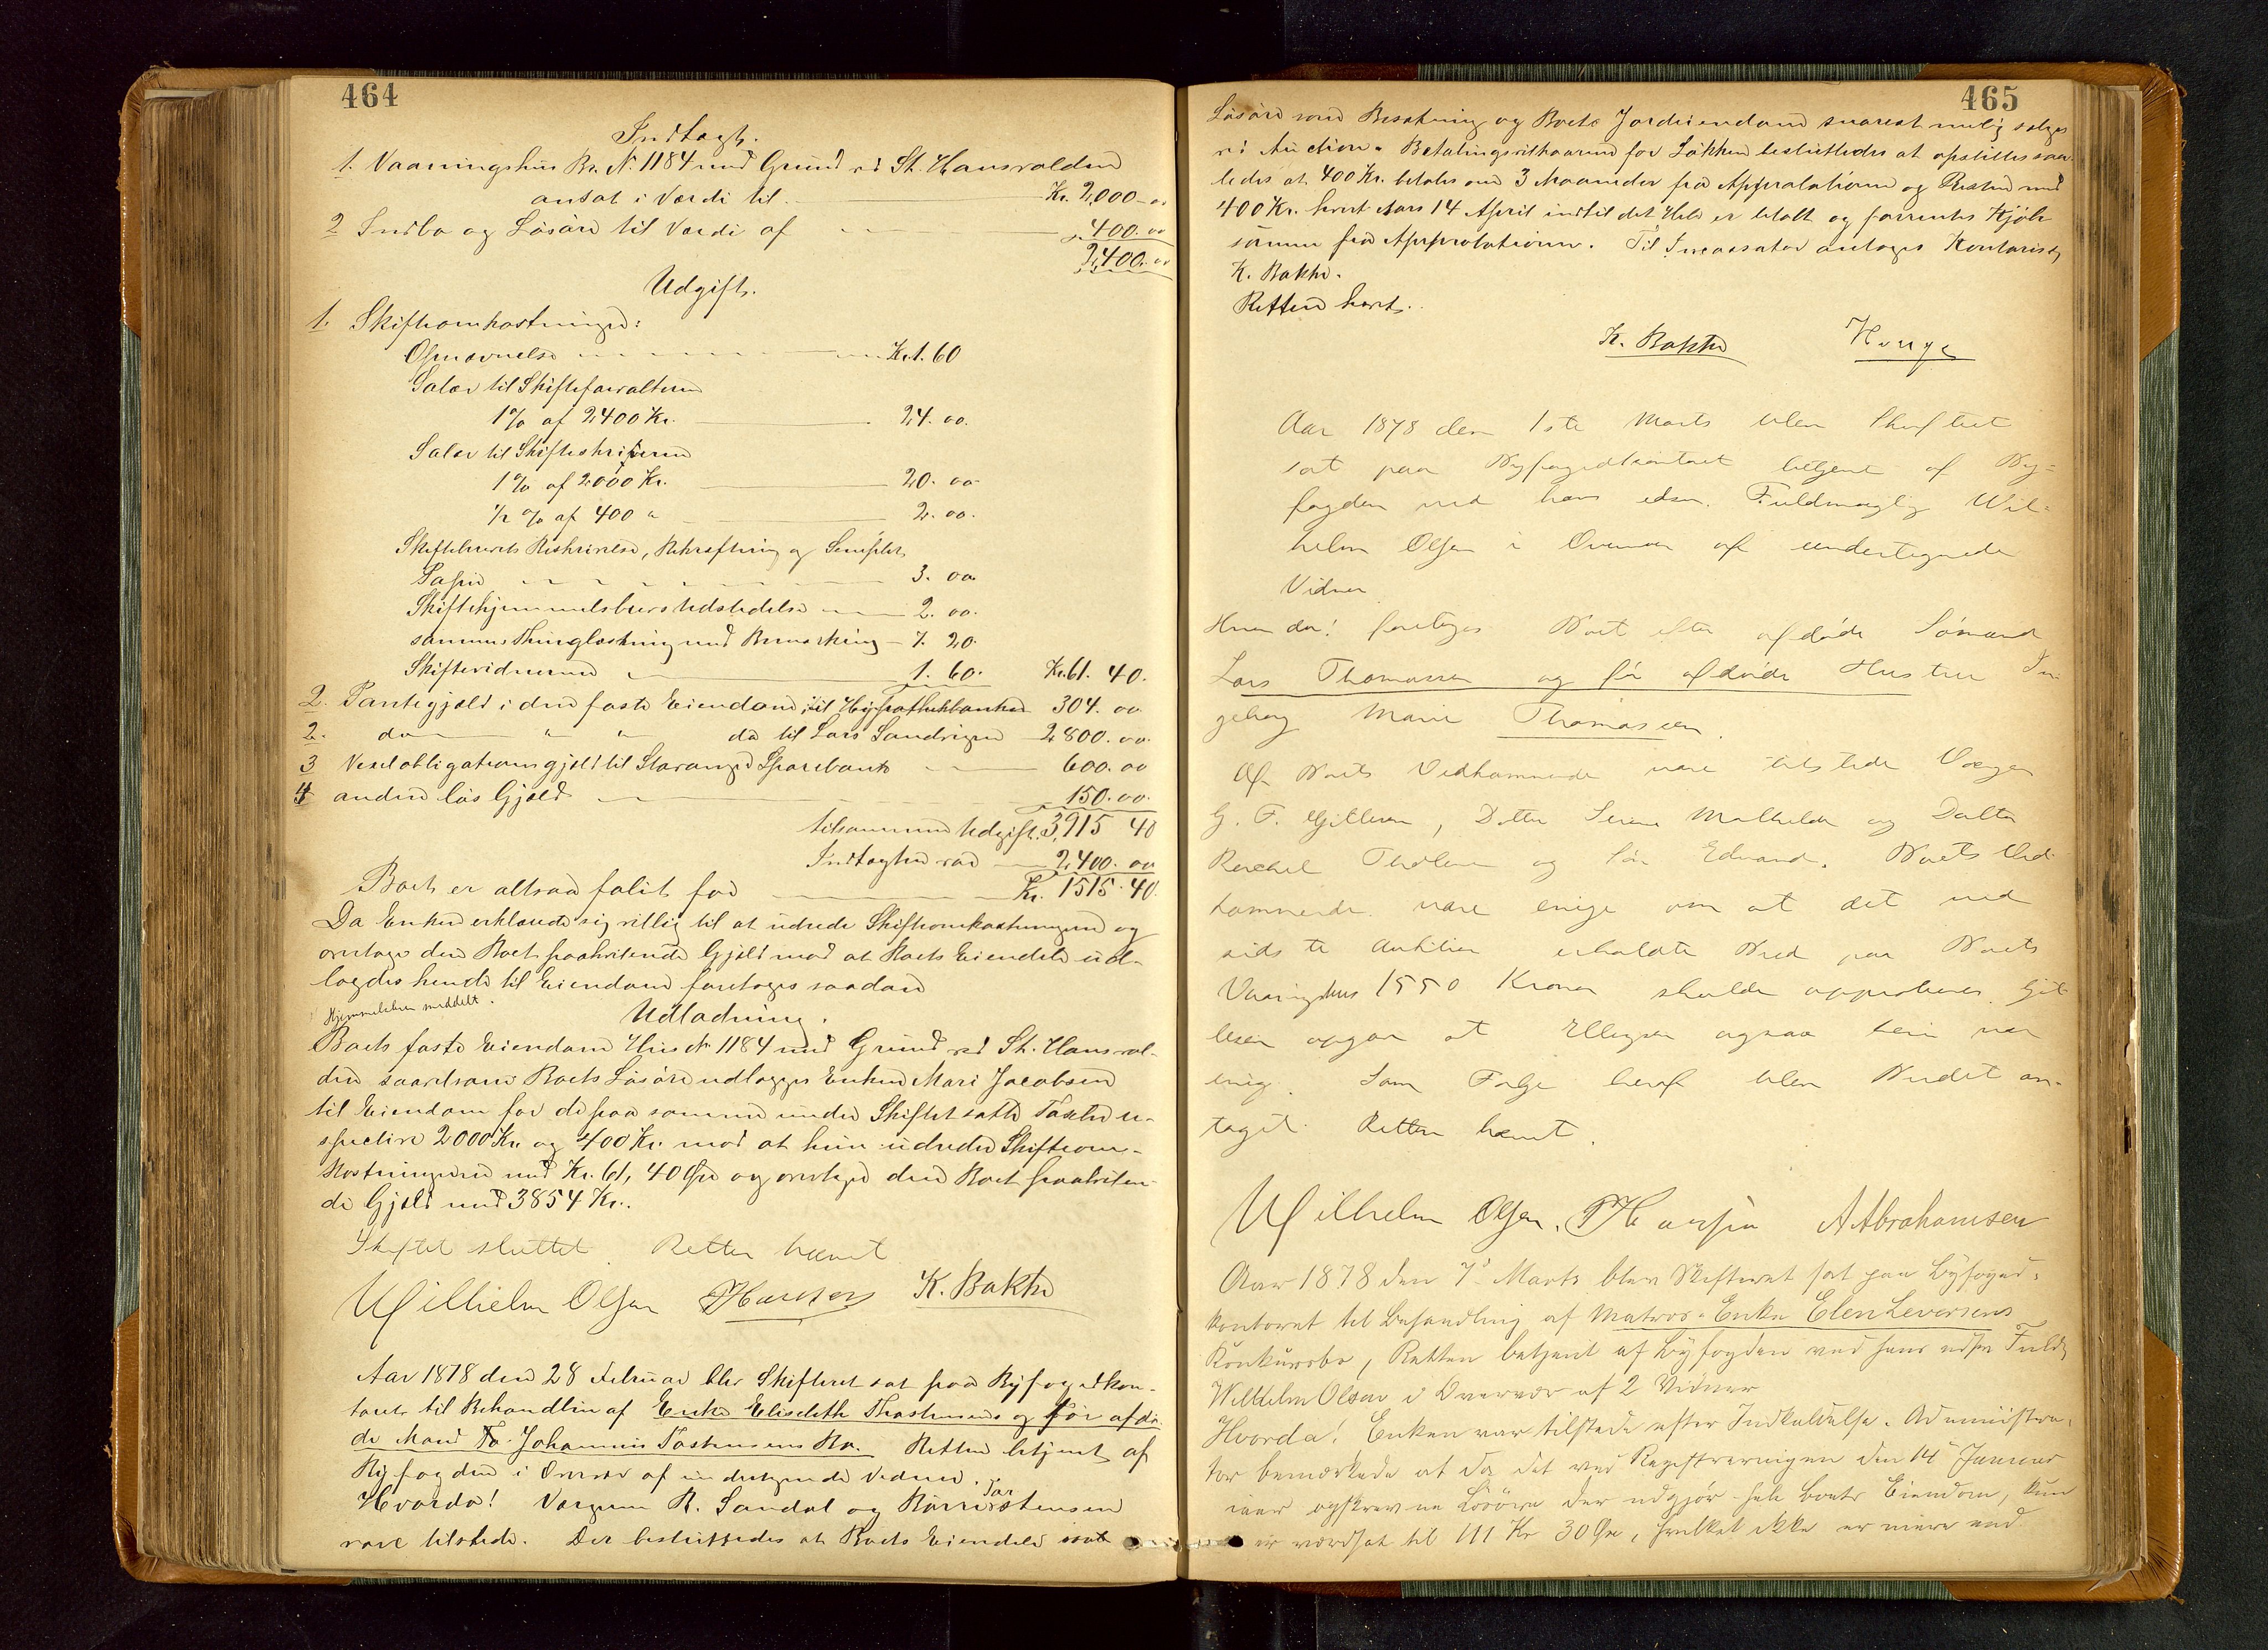 464
Indtægt.
1. Vaaningshus Br. N. 1184 med Grund ved St. Hansvolden
ansat i Værdi til Kr. 2,000-00
2 Indbo og Løsøre til Værdi af 400.00
2,400.00
Udgift.
1. Skifteomkostninger:
Opnævnelse Kr. 1.60
Salær til Skifteforvalteren
1% af 2400 Kr. 24.00.
Salær til Skifteskriveren
1% af 2000 Kr. 20.00
1/2 % af 400 " 2.00.
Skiftebrevets Beskrivelse, Bekræftning og Semplet
Papir 3.00
Skiftehjemmelsbrevs Udstedelse 2.00.
sammes Thinglæsning med Bemærkning 7.20
Skiftevidnerne 1.60. Kr. 61.40.
2. Pantegjæld i den faste Eiendom til Hypothekbanken 304.00
2. do " " do til Lars Sandvigen 2800.00.
3 Vexelobligationsgjæld til Stavanger Sparebank 600.00
4 anden løs Gjæld 150.00.
tilsammen Udgift. 3,915 40
Indtægten var 2,400.00
Boet er altsaa falit for Kr. 1515.40.
Da Enken erklærede sig villig til at udrede Skifteomkostningerne og
overtage den Boet paahvilende Gjæld mod at Boets Eiendele ud-
lagdes hende til Eiendom foretoges saadan
Hjemmelsbrev meddelt.
Udlodning.
Boets faste Eiendom Hus N 1184 med Grund ved St. Hansvol-
den saavelsom Boets Løsøre udlægges Enken Mari Jacobsen
til Eiendom for de paa samme under Skiftet satte Taxter re-
spective 2000 Kr. og 400 Kr. mod at hun udreder Skifteom-
kostningerne med Kr. 61, 40 Øre og overtager den Boet paahvilen-
de Gjæld med 3854 Kr.
Skiftet sluttet Retten hævet
Wilhelm Olsen K. Bakke
Aar 1878 den 28 Februar blev Skifteret sat paa Byfogedkon-
toret til Behandling af Enke Elisabeth Thorstensens og før afdø-
de Mand To. Johannes Tostensens Bo. Retten betjent af
Byfogden i Overvær af undertegnede Vidner.
Hvorda! Værgerne R. Sandal og Børre Torstensen
vare tilstede. Det besluttedes at Boets Eiendele saavel
465
Løsøre som Besætning og Boets Jordeiendom snarest mulig sælges
ved Auction. Betalingsvilkaarene for Løkken besluttedes at opstilles saa-
ledes at 400 Kr. betales om 3 Maaneder fra Approbationen og Resten med
400 Kr. hvert Aars 14 April indtil det Hele er betalt og forrentes Kjøbe-
summen fra Approbationen. Til Incassator antoges Kontorist
K. Bakke.
Retten hævet.
K. Bakke Hauge
Aar 1878 den 1ste Marts blev Skifteret
sat paa Byfogedkontoret betjent af By-
fogden ved hans edsv. Fuldmægtig Wil-
helm Olsen i Overvær af undertegnede
Vidner
Hvorda! foretoges Boet efter afdøde Sømand
Lars Thomassen og før afdøde Hustru In-
geborg Marie Thomassen.
Af Boets Vedkommende vare tilstede Værgen
G. F. Gillesen, Datter Serine Mathilde og Datter
Rachel Tholene og Søn Edvard. Boets Ved-
kommende vare enige om at det ved
sidste Auktion erholdte Bud paa Boets
Vaaningshus 1550 Kroner skulde approberes. Gil-
lesen opgav at Ellegsen ogsaa heri var
enig. Som Følge heraf blev Budet an-
taget. Retten hævet.
Wilhelm Olsen. A Abrahamsen
Aar 1878 den 7de Marts blev Skifteret sat paa Byfoged-
kontoret til Behandling af Matros-Enke Elen Leversens
Konkursbo, Retten betjent af Byfogden ved hans edsv Fuldm
Wilhelm Olsen i Overvær af 2 Vidner
Hvorda! Enken var tilstede efter Indkaldelse. Administra-
tor bemærkede at da det ved Registreringen den 14 Januar
iaar opskrevne Løsøre der udgjør hele Boets Eiendom, kun
er værdsat til 111 Kr 30 Øre, hvilket ikke er mere end